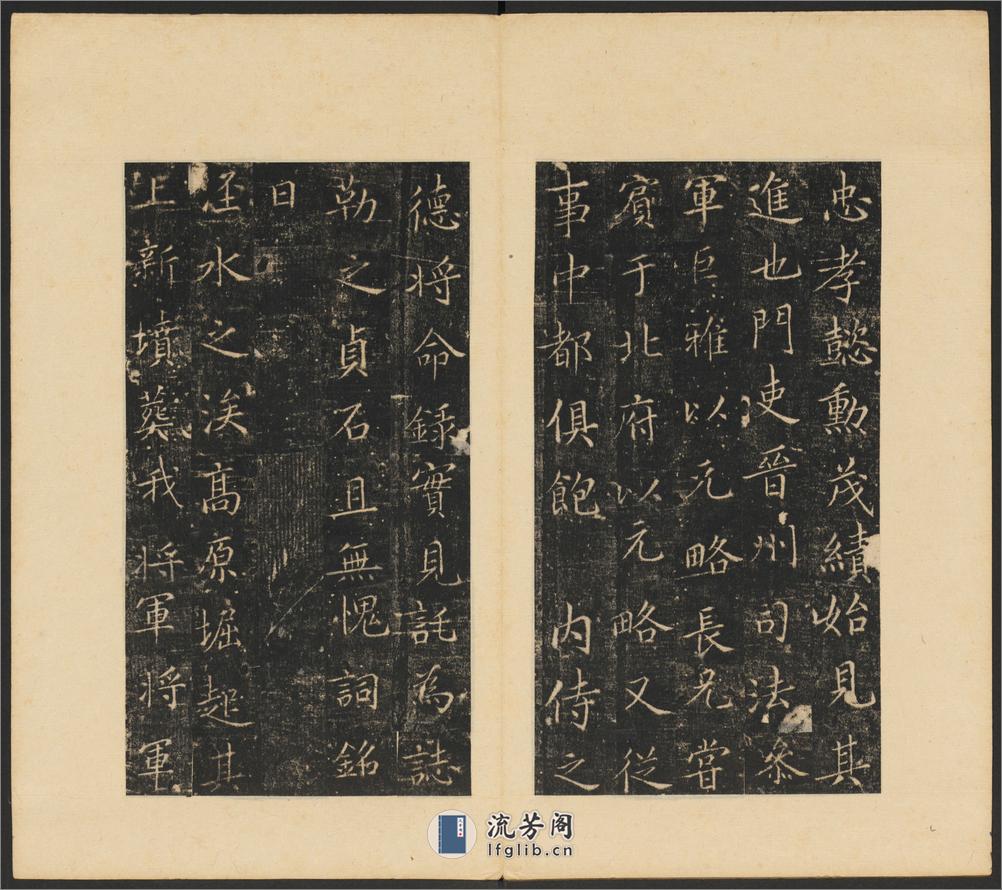 忠孝懿勳茂績始見其
進也門吏晉州司法叅
軍巨雅以元略長兄嘗
賓于北府以元略又從
事中都俱飽內侍之
德将命錄實見託為誌
勒之貞石且無愧詞銘
曰
水之涘高原堀起其
上新墳葬我将軍将軍
流芳阁
lfglib.cn